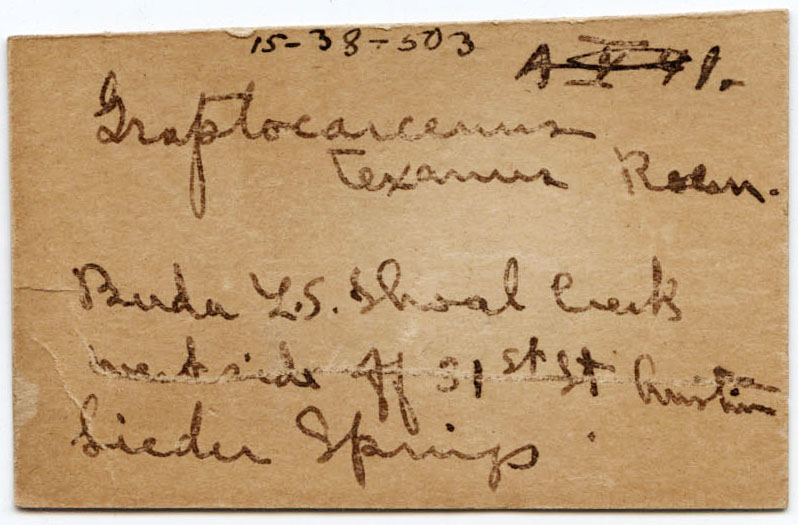 15-38-503
A 91.
Graptocarcenus
texanus Roem.
Buda L.S. Shoal Creek
west side off 31st St Austin
Lieder Springs